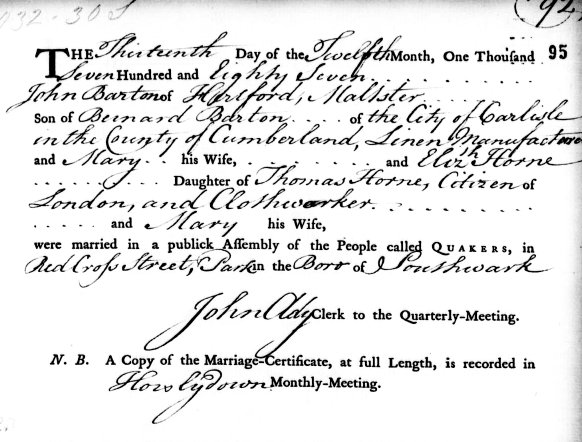 032-30S
92
THE Thirteenth Day of the Twelfth Month, One Thouſand 95
Seven Hundred and Eighty Seven
John Barton of Hertford, Maltster
Son of Bernard Barton of the City of Carlisle
in the County of Cumberland, Linen Manufacturer
and Mary his Wife, and Elizth Horne
Daughter of Thomas Horne, Citizen of
London, and Clothworker
and Mary his Wife,
were married in a publick Aſſembly of the People called QUAKERS, in
Red Croſs Street, Park in the Boro of Southwark
John Ady Clerk to the Quarterly-Meeting.
N. B. A Copy of the Marriage-Certificate, at full Length, is recorded in
Horslydown Monthly-Meeting.